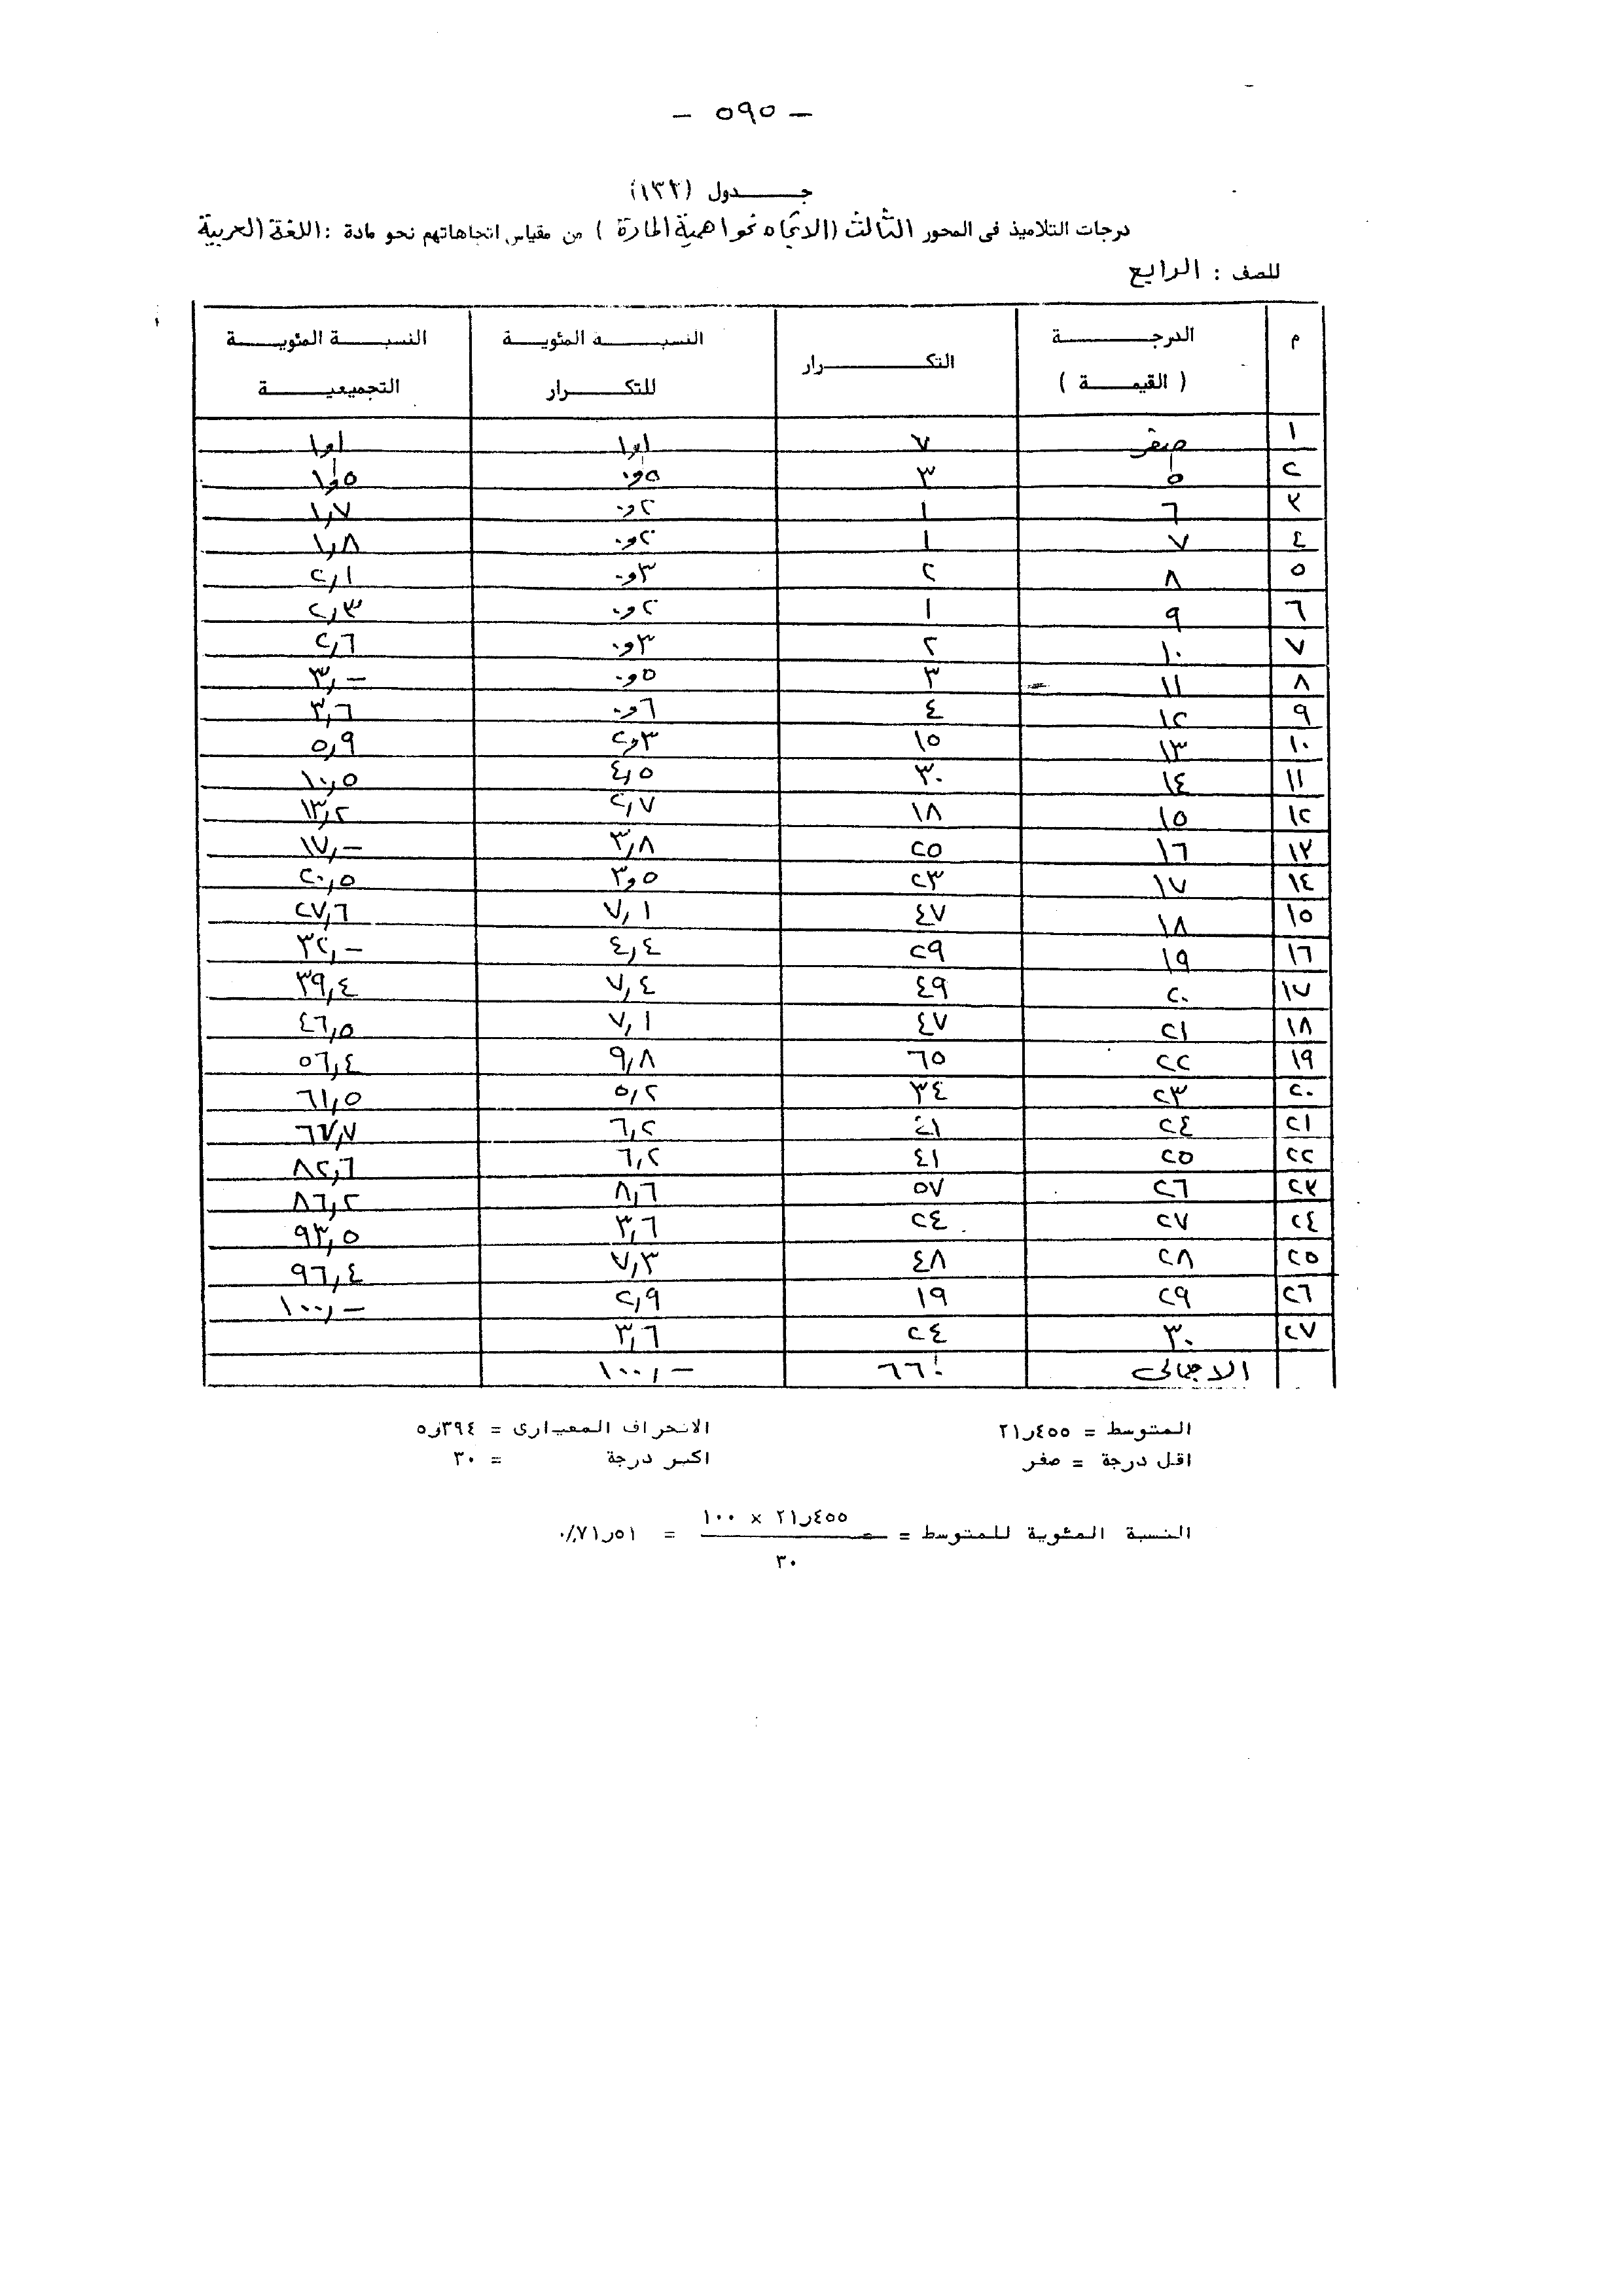 - ٥٩٥ -
جدول (١٣٢)
درجات التلاميذ فى المحور الثالث (الاتجاه نحو اهمية المادة ) من مقياس اتجاهاتهم نحو مادة : اللغة العربية
للصف : الرابع
م الدرجة (القيمة ) التكرار النسبة المئوية للتكرار النسبة المئوية التجميعية
١ صفر ٧ ١و١ ١و١
٢ ٥ ٣ ٥و٠ ٥و١
٣ ٦ ١ ٢و٠ ١,٧
٤ ٧ ١ ٢و٠ ١,٨
٥ ٨ ٢ ٣و٠ ٢,١
٦ ٩ ١ ٢و٠ ٢,٣
٧ ١٠ ٢ ٣و٠ ٢,٦
٨ ١١ ٣ ٥و٠ ٣,-
٩ ١٢ ٤ ٦و٠ ٣,٦
١٠ ١٣ ١٥ ٣و٢ ٥,٩
١١ ١٤ ٣٠ ٤,٥ ١٠,٥
١٢ ١٥ ١٨ ٢,٧ ١٣,٢
١٣ ١٦ ٢٥ ٣,٨ ١٧,-
١٤ ١٧ ٢٣ ٥و٣ ٢٠,٥
١٥ ١٨ ٤٧ ٧,١ ٢٧,٦
١٦ ١٩ ٢٩ ٤,٤ ٣٢,-
١٧ ٢٠ ٤٩ ٧,٤ ٣٩,٤
١٨ ٢١ ٤٧ ٧,١ ٤٦,٥
١٩ ٢٢ ٦٥ ٩,٨ ٥٦,٤
٢٠ ٢٣ ٣٤ ٥,٢ ٦١,٥
٢١ ٢٤ ٤١ ٦,٢ ٦٧,٧
٢٢ ٢٥ ٤١ ٦,٢ ٨٢,٦
٢٣ ٢٦ ٥٧ ٨,٦ ٨٦,٢
٢٤ ٢٧ ٢٤ ٣,٦ ٩٣,٥
٢٥ ٢٨ ٤٨ ٧,٣ ٩٦,٤
٢٦ ٢٩ ١٩ ٢,٩ ١٠٠,-
٢٧ ٣٠ ٢٤ ٣,٦
الاجمالى ٦٦٠ ١٠٠,-
المتوسط = ٤٥٥ر٢١ الانحراف المعيارى = ٣٩٤ر٥
اقل درجة = صفر اكبر درجة = ٣٠
النسبة المئوية للمتوسط = ٤٥٥ر٢١ × ١٠٠ = ٥١ر٧١٪
٣٠